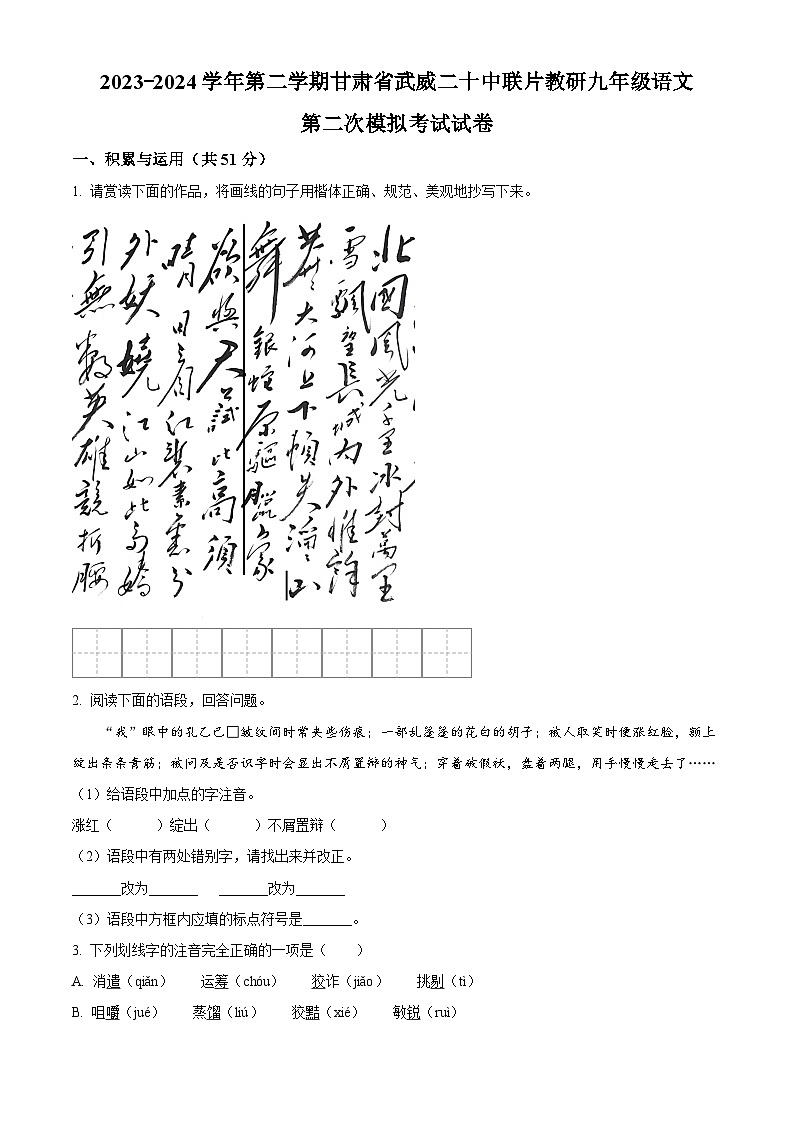 2023-2024学年第二学期甘肃省武威二十中联片教研九年级语文
第二次模拟考试试卷
一、积累与运用（共51分）
1. 请赏读下面的作品，将画线的句子用楷体正确、规范、美观地抄写下来。
北國風光千里冰封萬里
雪飄望長城内外惟餘
莽莽大河上下頓失滔滔山
舞銀蛇原驅臘象
欲與天公試比高須
晴日看紅裝素裹分
外妖嬈江山如此多嬌
引無數英雄競折腰
2. 阅读下面的语段，回答问题。
“我”眼中的孔乙己□皱纹间时常夹些伤痕；一部乱篷篷的花白的胡子；被人取笑时便涨红脸，额上
绽出条条青筋；被问及是否识字时会显出不屑置辩的神气；穿着破假袄，盘着两腿，用手慢慢走去了……
（1）给语段中加点的字注音。
涨红（　　　）绽出（　　　）不屑置辩（　　　）
（2）语段中有两处错别字，请找出来并改正。
_______改为_______　_______改为_______
（3）语段中方框内应填的标点符号是_______。
3. 下列划线字的注音完全正确的一项是（　　）
A. 消遣（qiǎn）　运筹（chóu）　狡诈（jiǎo）　挑剔（tì）
B. 咀嚼（jué）　蒸馏（liú）　狡黠（xié）　敏锐（ruì）